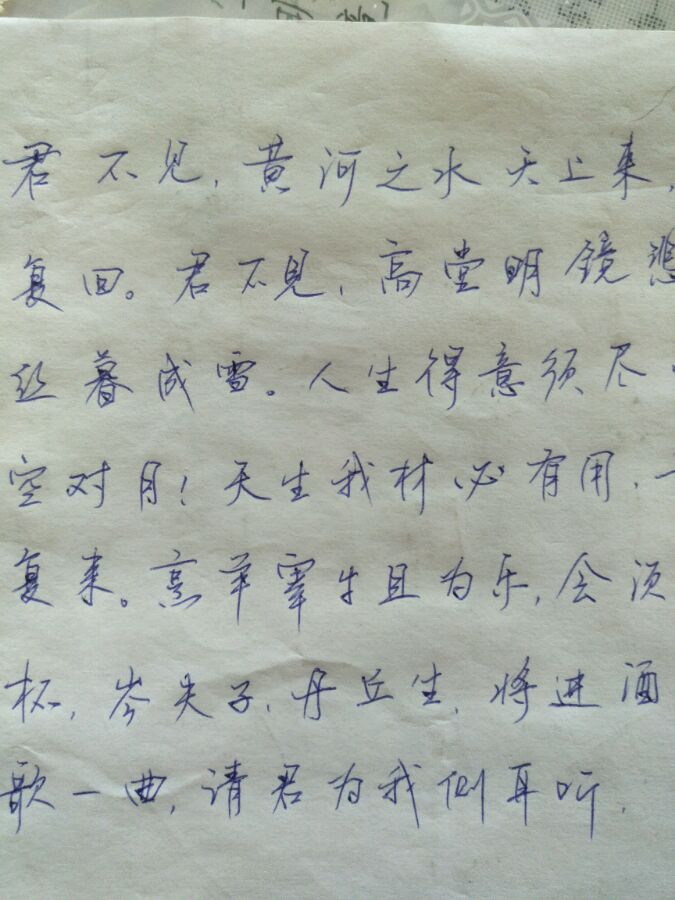 君不见,黄河之水天上来,
复回。君不见,高堂明镜悲
丝暮成雪。人生得意须尽
空对月!天生我材必有用,一
复来。烹羊宰牛且为乐,会须
杯,岑夫子,丹丘生,将进酒
歌一曲,请君为我侧耳听,